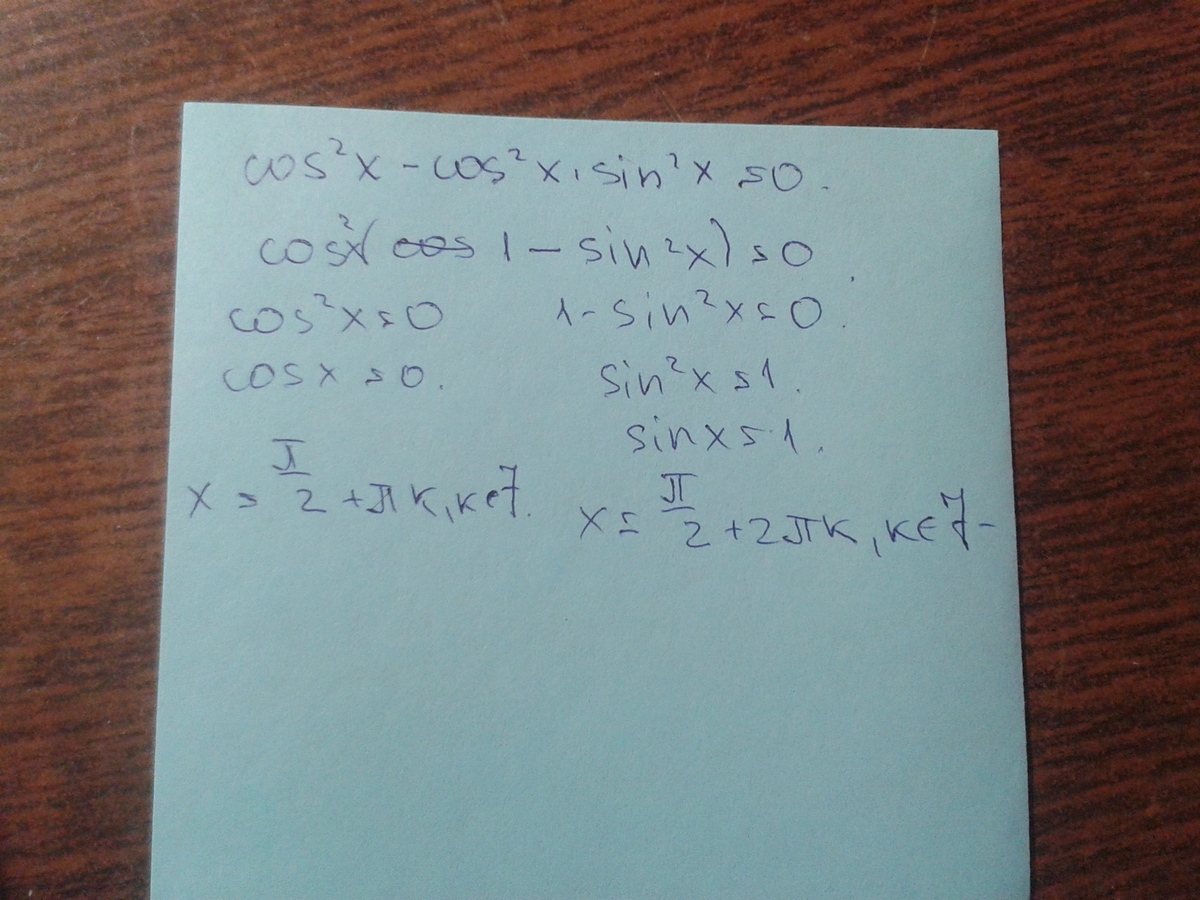 cos²x - cos²x · sin²x = 0.
cos²x( cos 1 - sin²x) = 0
cos²x = 0 1 - sin²x = 0.
cosx = 0. sin²x = 1.
sinx = 1.
x = π/2 + πk, k∈Z. x = π/2 + 2πk, k∈Z